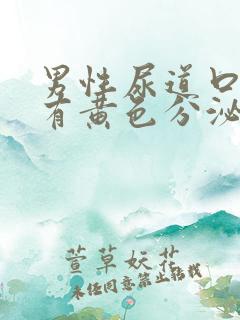 男性尿道口
有黄色分泌
萱草妖花
未经同意禁止转载